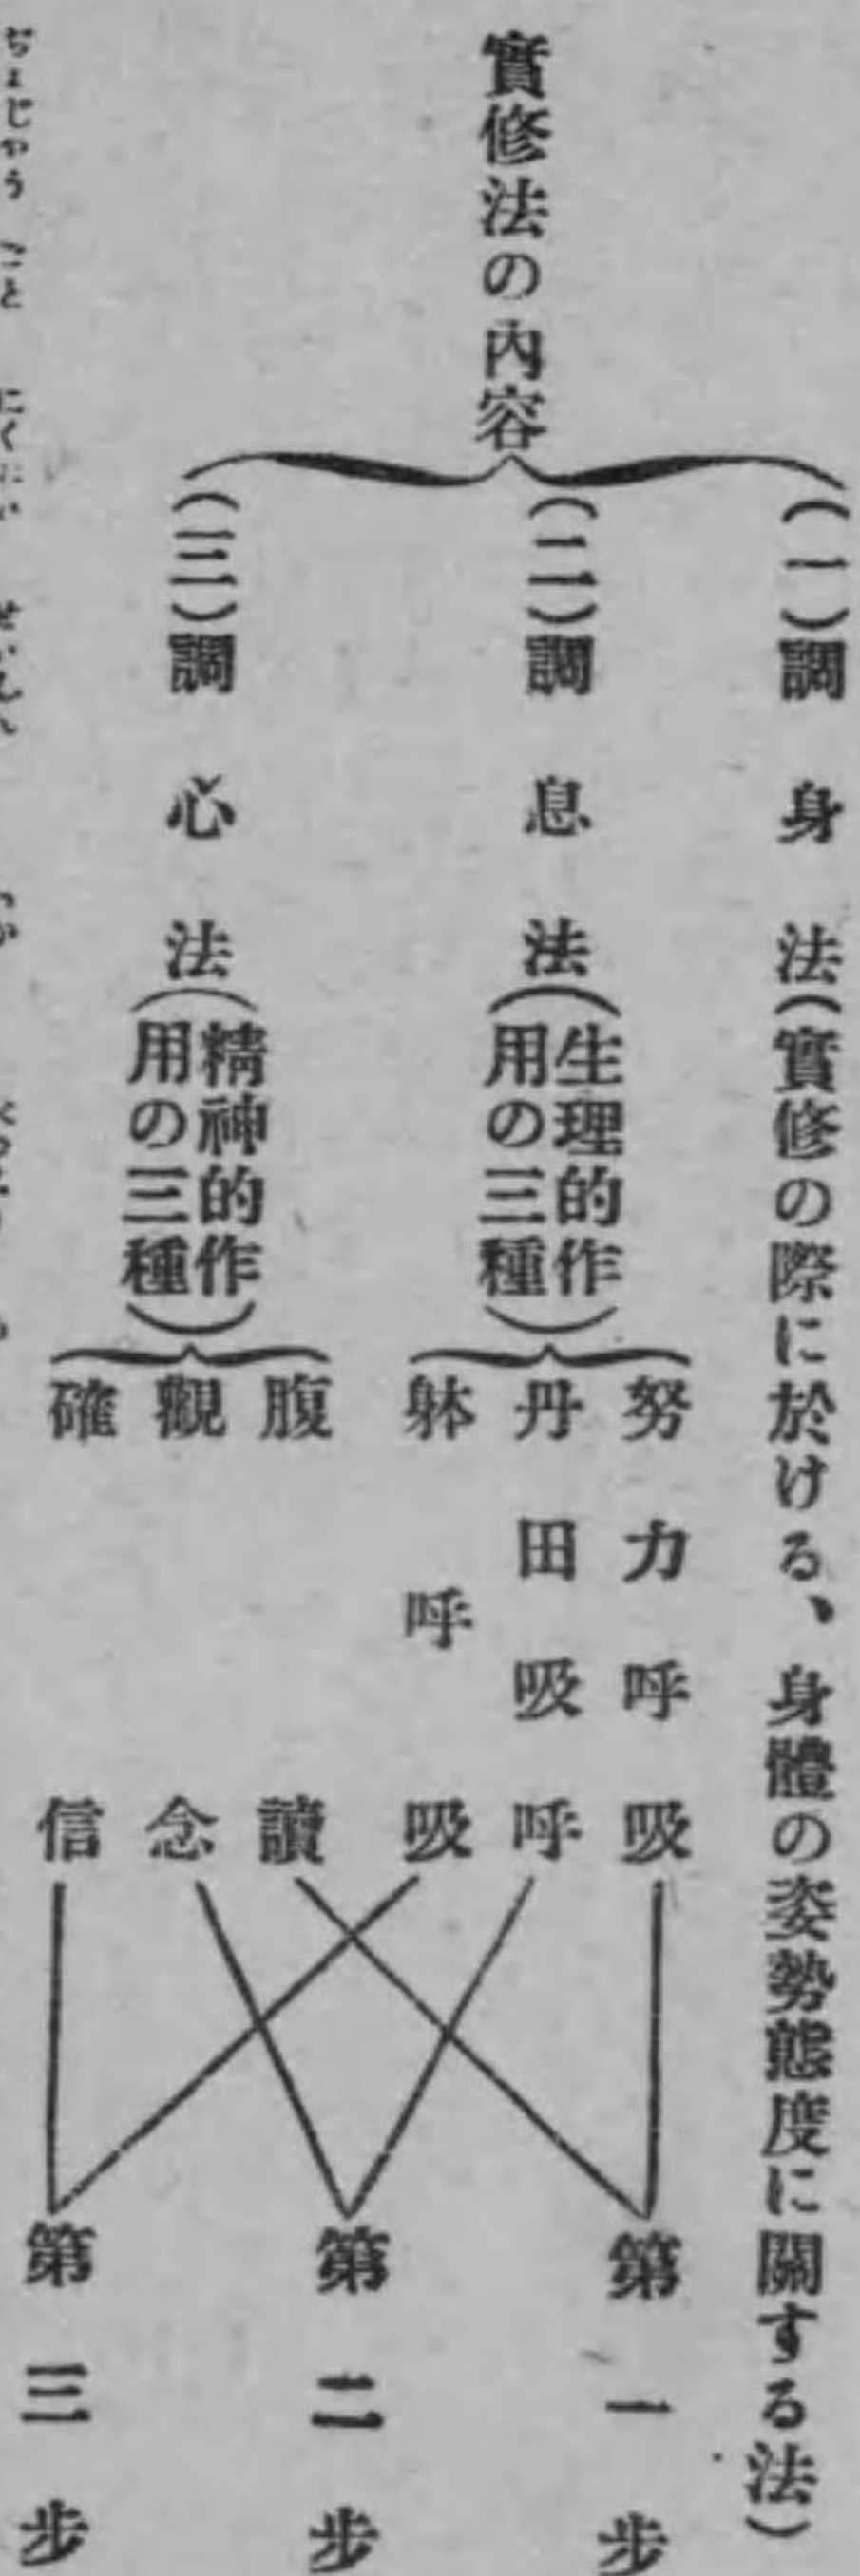 實修法の內容
(一)調身法(實修の際に於ける、身體の姿勢態度に關する法)
(二)調息法(生理的作
用の三種)
努力呼吸
丹田吸呼
躰呼吸
(三)調心法(精神的作
用の三種)
腹讀
觀念
確信
第一步
第二步
第三步
ちよじやう こと